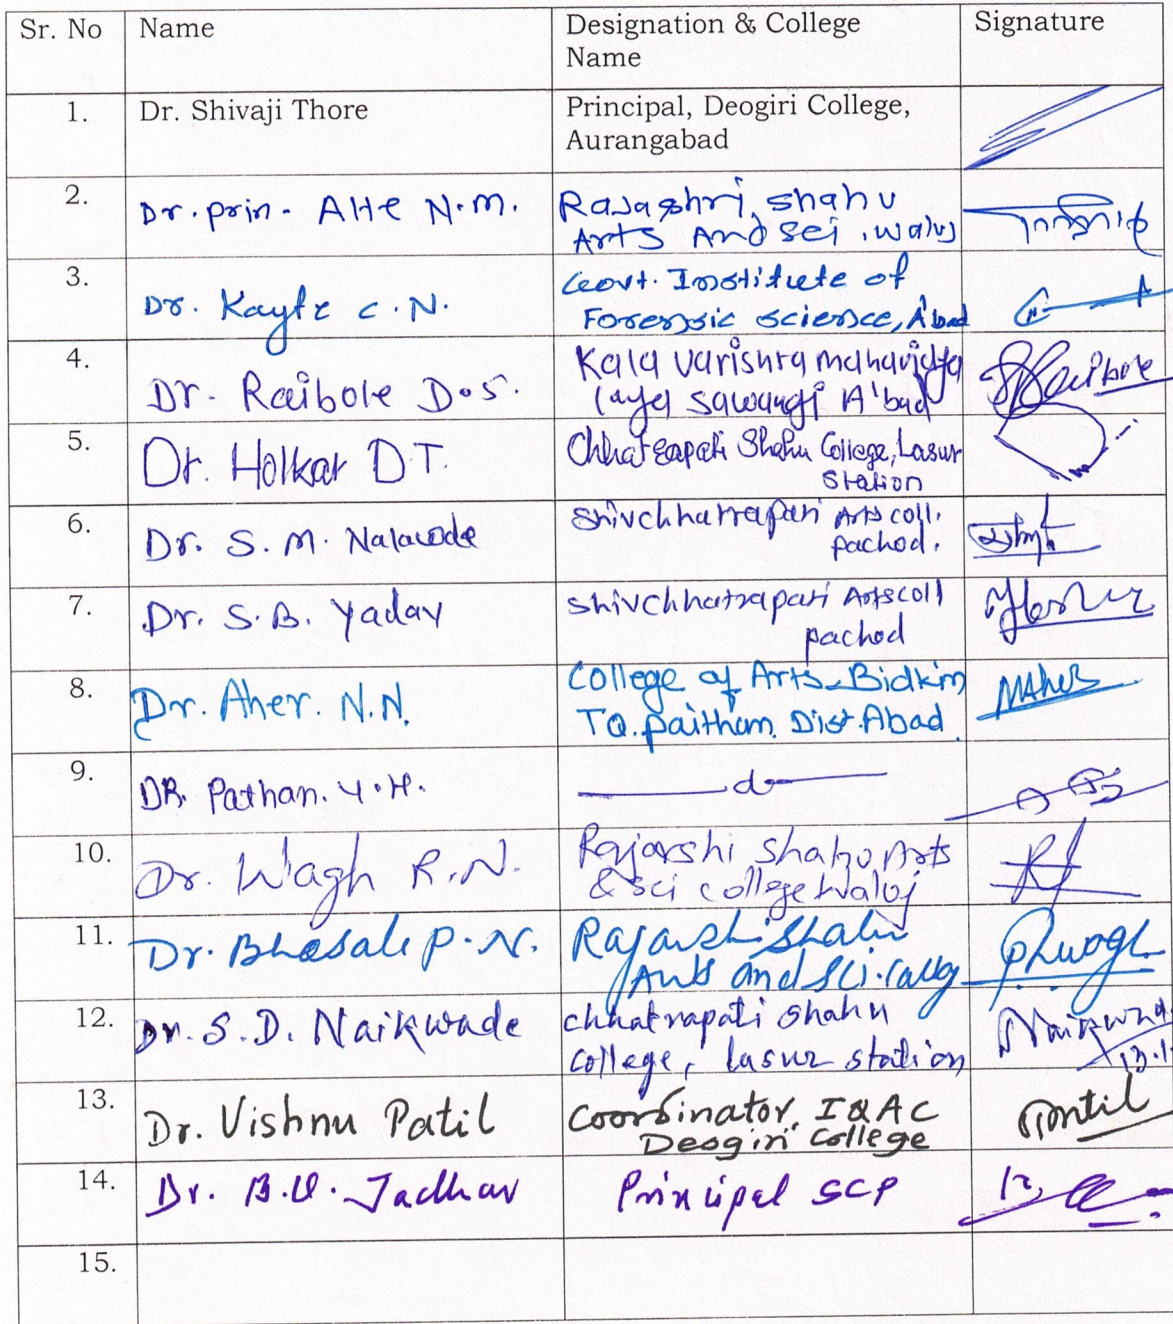 Sr. No Name Designation & College Signature
Name
1. Dr. Shivaji Thore Principal, Deogiri College,
Aurangabad
2. Dr. prin. AHe N.M. Rajashri shahu
Arts And Sci. waluj
3. Dr. Kayte C.N. Govt. Institute of
Forensic science, A'bad
4. Dr. Raibole D.S. Kala varishta mahavidya
laya sawangi A'bad Raibole
5. Dr. Holkar D.T. Chhatrapati Shahu College, Lasur
Station
6. Dr. S. M. Nalawode shivchhatrapati Arts coll.
pachod.
7. Dr. S. B. Yadav shivchhatrapati Arts coll
pachod
8. Dr. Aher. N.N. College of Arts Bidkin
TQ. paithan. Dist. Abad.
9. DR. Pathan. Y.H. d
10. Dr. Wagh R.N. Rajarshi Shahu Arts
& Sci college Waluj
11. Dr. Bhosale P.N. Rajarshi Shahu
Arts and Sci.
12. Dr. S.D. Naikwade chhatrapati Shahu
College, Lasur station
13. Dr. Vishnu Patil Coordinator, IQAC
Deogiri College
14. Dr. B.U. Jadhav Principal SCP
15.